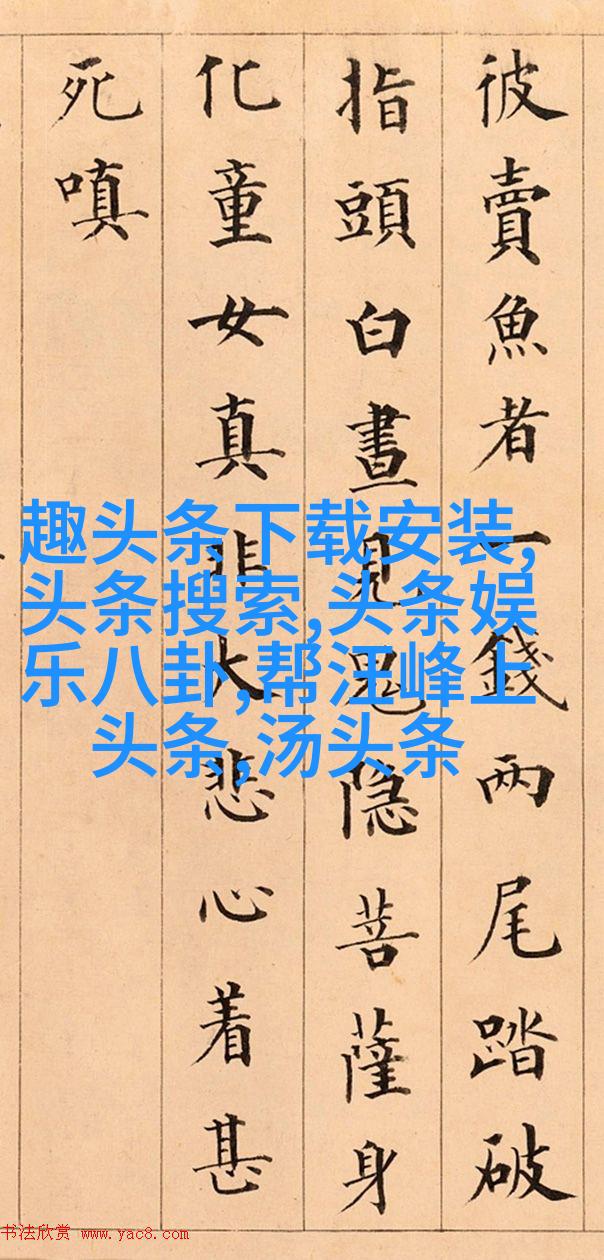 彼賣魚者一錢兩尾踏破
指頭白晝見鬼隐菩薩身
化童女真非大悲心着甚
死嗔
趣头条下载安装,
头条搜索,头条娱
乐八卦,帮汪峰上
头条,汤头条
书法欣赏 www.yac8.com